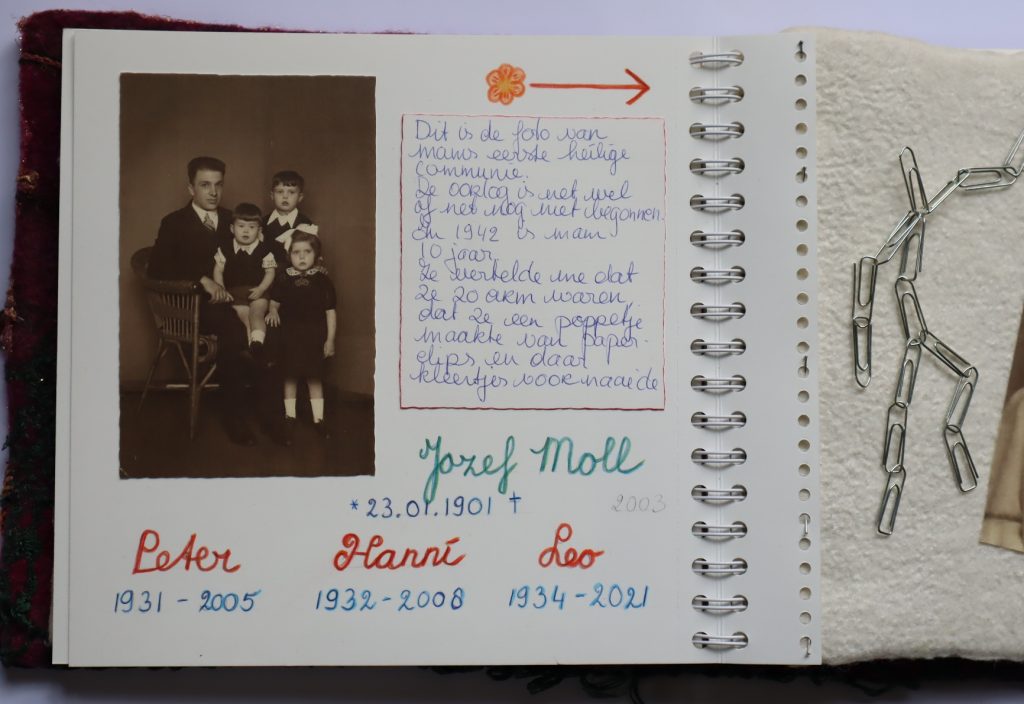 Dit is de foto van
mams eerste heilige
communie.
De oorlog is net wel
of net nog niet begonnen.
In 1942 is mam
10 jaar.
Ze vertelde me dat
ze zo arm waren,
dat ze een poppetje
maakte van paper-
clips en daar
kleertjes voor naaide
Jozef Moll
* 23.01.1901 † 2003
Peter Hanni Leo
1931 - 2005 1932 - 2008 1934 - 2021